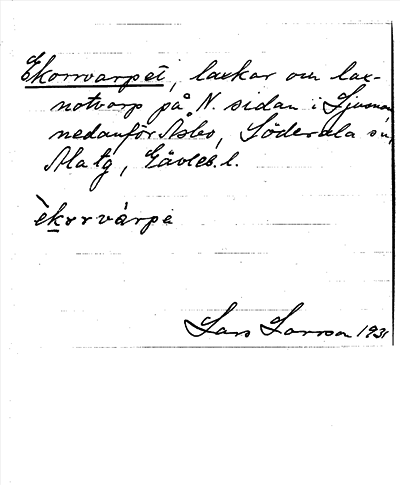 Ekorrvarpet, laxkar om lax-
notvarp på N. sidan i Ljusnan
nedanför Åsbo, Söderala sn,
Ala tg, Gävleb. l.
èkorrvárpe
Lars Larsson 1931